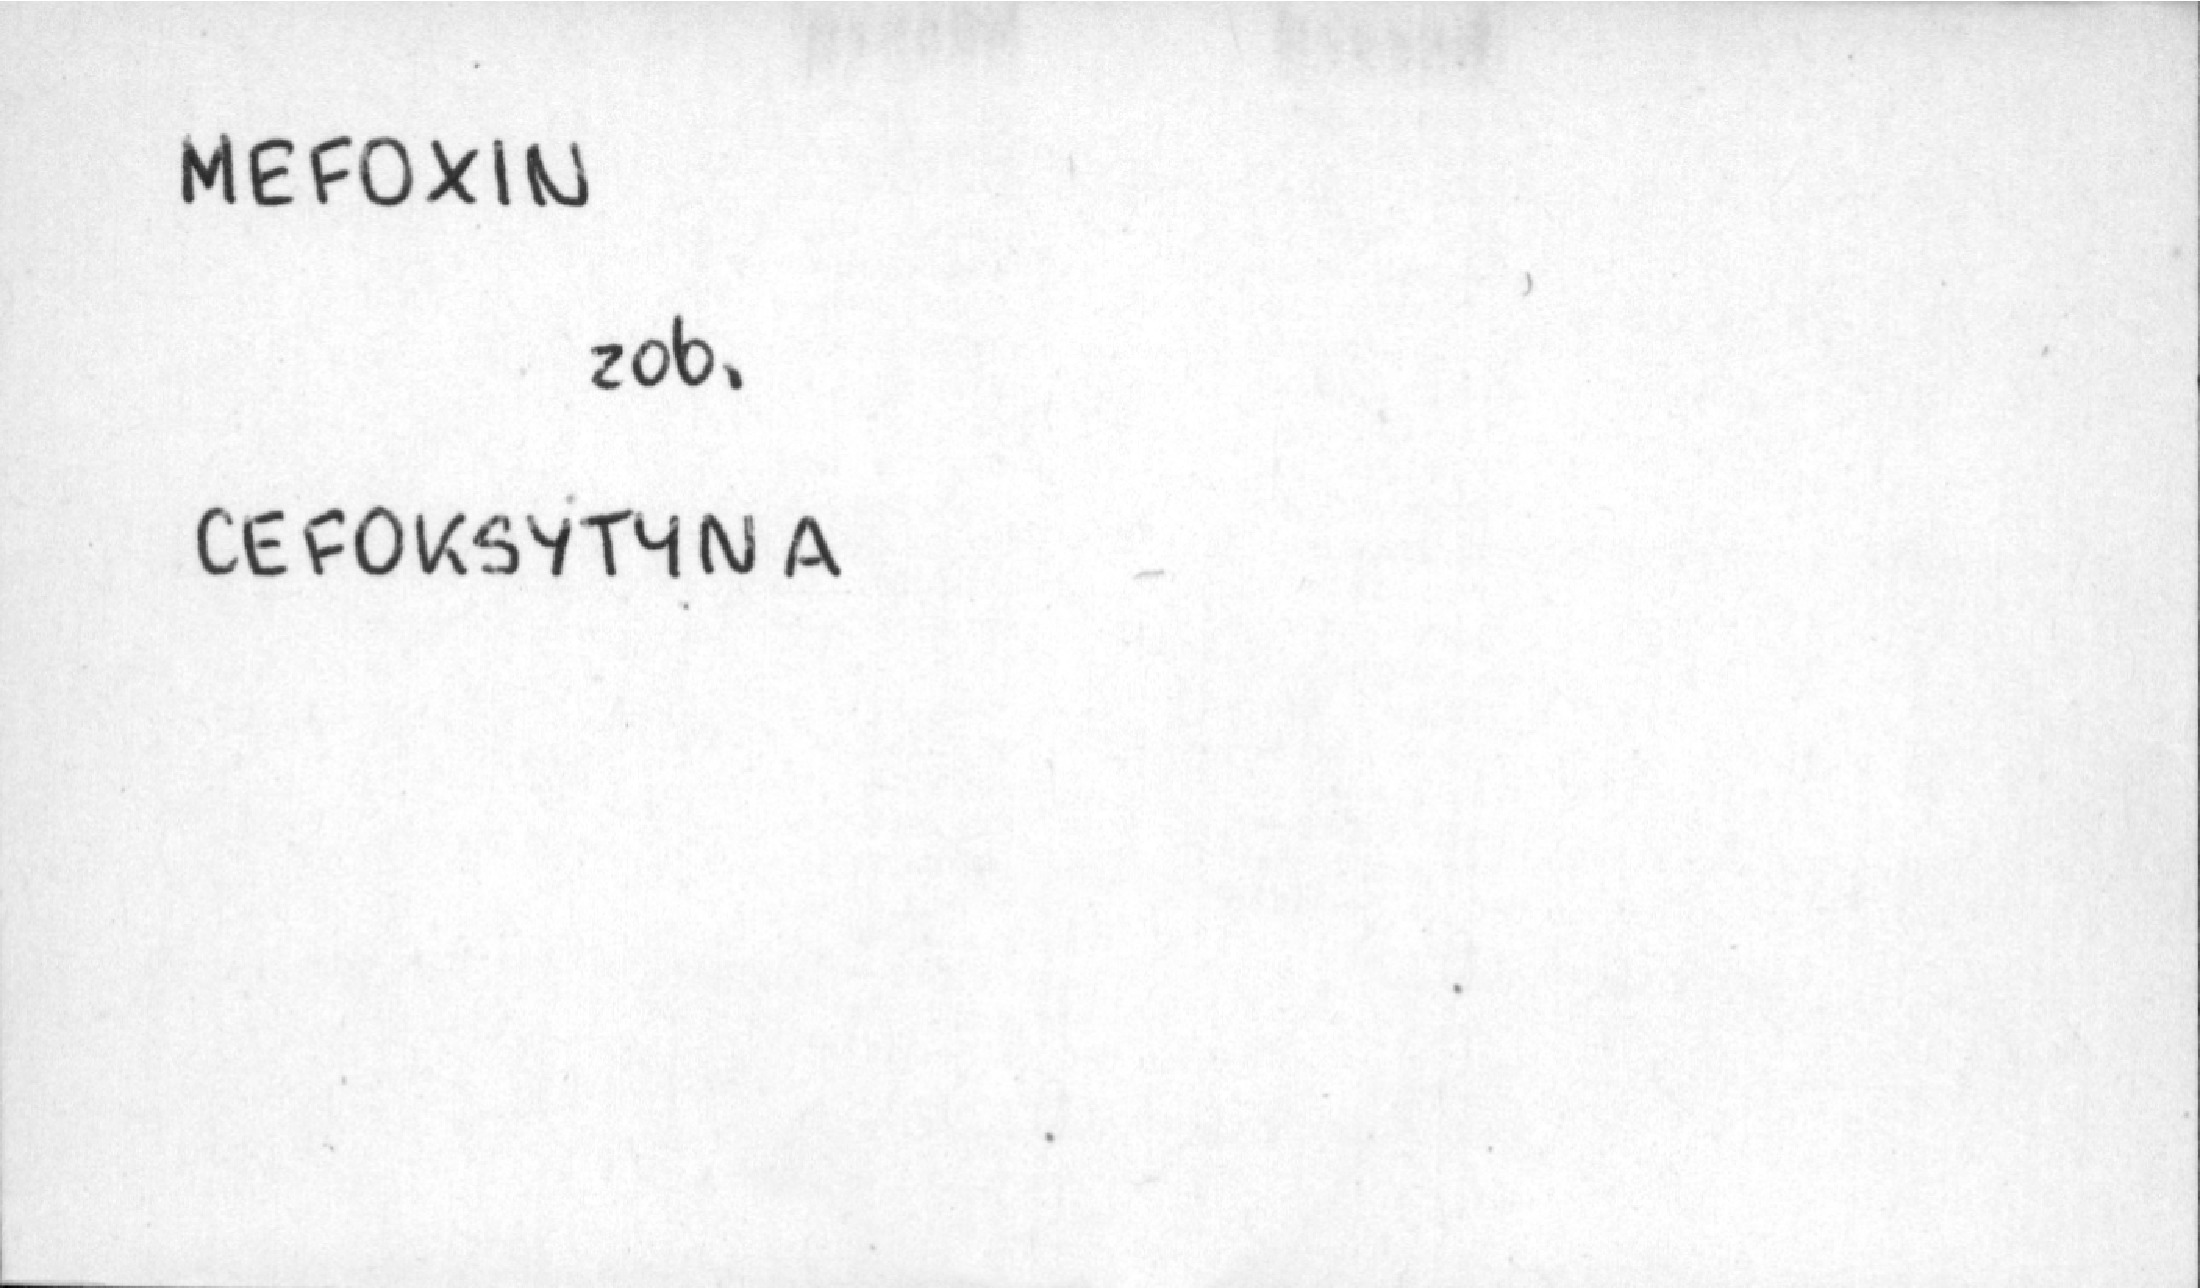 MEFOXIN
zob.
CEFOKSYTYNA